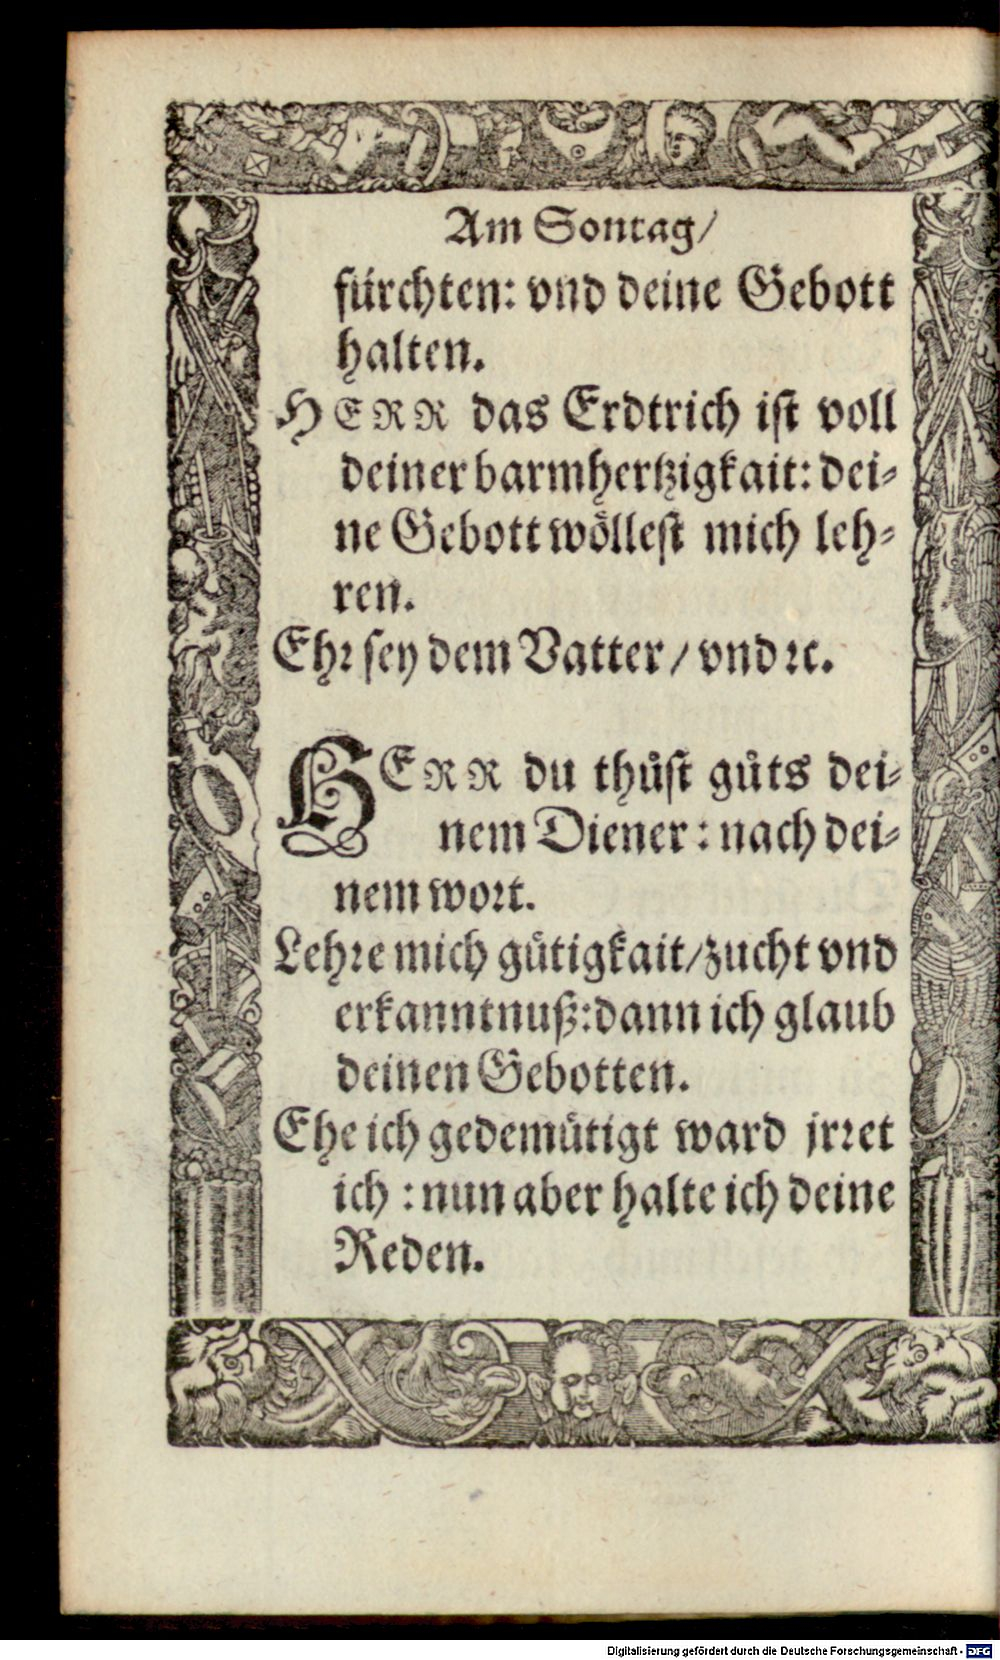 Am Sontag/
fürchten: vnd deine Gebott
halten.
HERR das Erdtrich ist voll
deiner barmhertzigkait: dei-
ne Gebott wöllest mich leh-
ren.
Ehr sey dem Vatter / vnd ꝛc.
HERR du thůst gůts dei-
nem Diener: nach dei-
nem wort.
Lehre mich gütigkait/zucht vnd
erkanntnuß: dann ich glaub
deinen Gebotten.
Ehe ich gedemütigt ward jrret
ich : nun aber halte ich deine
Reden.
Digitalisierung gefördert durch die Deutsche Forschungsgemeinschaft - DFG